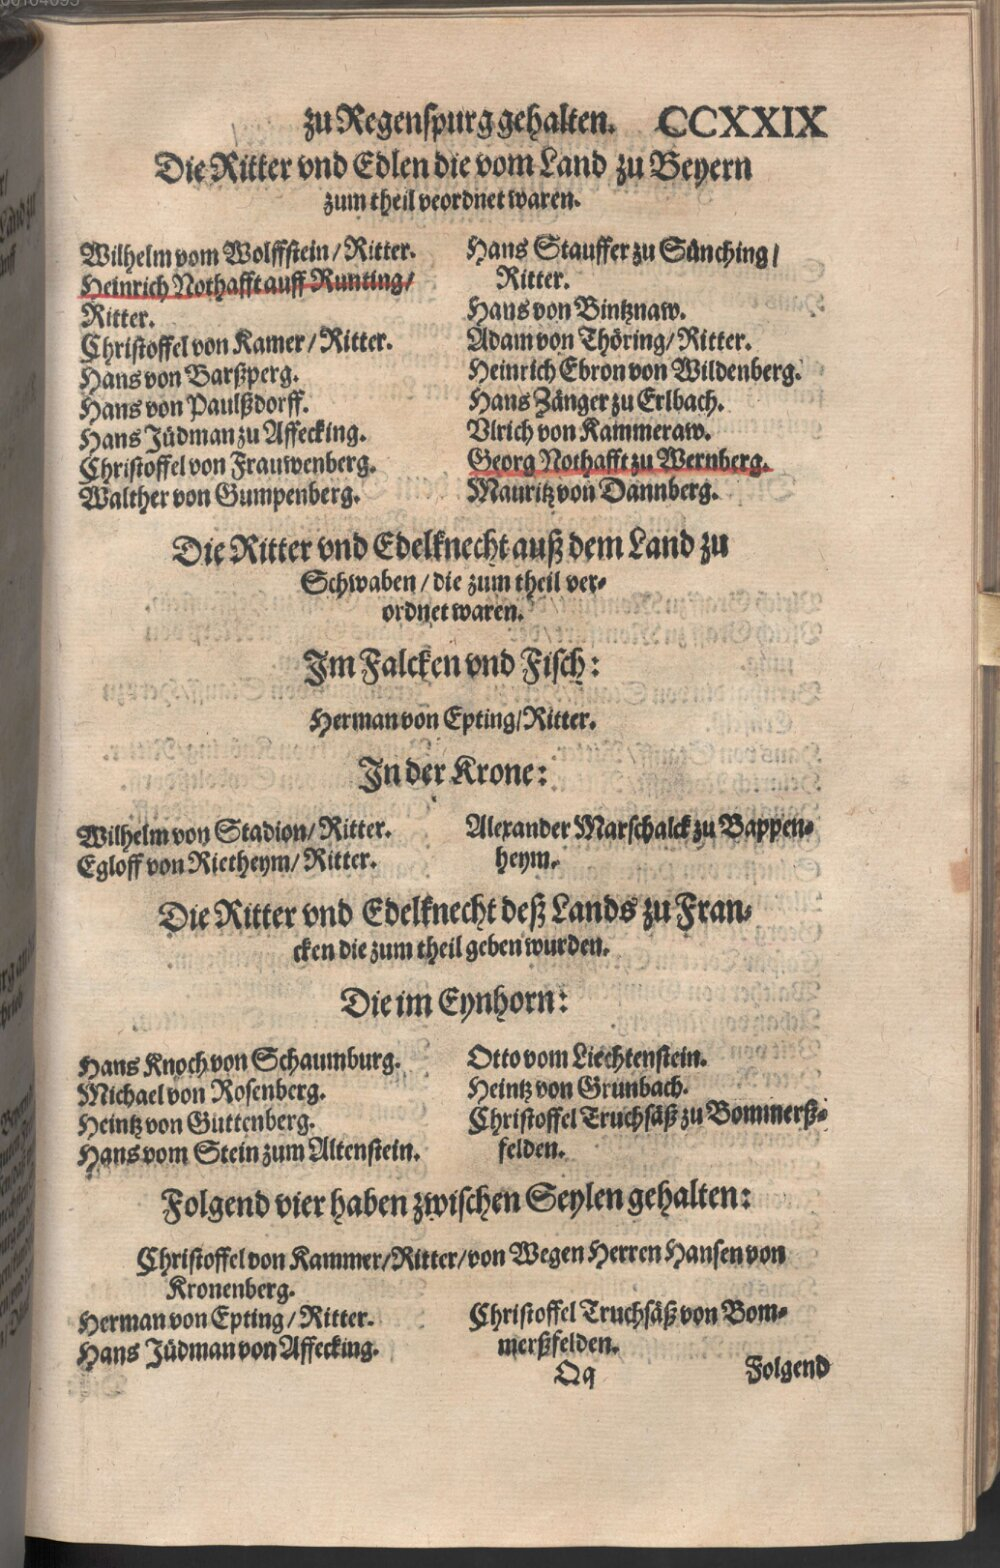 zu Regenspurg gehalten. CCXXIX
Die Ritter vnd Edlen die vom Land zu Beyern
zum theil veordnet waren.
Wilhelm vom Wolffstein / Ritter.
Heinrich Nothafft auff Runting /
Ritter.
Christoffel von Kamer / Ritter.
Hans von Barßperg.
Hans von Paulßdorff.
Hans Jüdman zu Affecking.
Christoffel von Frauwenberg.
Walther von Gumpenberg.
Hans Stauffer zu Sünching /
Ritter.
Hans von Bintznaw.
Adam von Thöring / Ritter.
Heinrich Ebron von Wildenberg.
Hans Zänger zu Erlbach.
Vlrich von Kammeraw.
Georg Nothafft zu Wernberg.
Mauritz von Dannberg.
Die Ritter vnd Edelknecht auß dem Land zu
Schwaben / die zum theil ver-
ordnet waren.
Im Falcken vnd Fisch:
Herman von Epting / Ritter.
In der Krone:
Wilhelm von Stadion / Ritter.
Egloff von Rietheym / Ritter.
Alexander Marschalck zu Bappen-
heym.
Die Ritter vnd Edelknecht deß Lands zu Fran-
cken die zum theil geben wurden.
Die im Eynhorn:
Hans Knoch von Schaumburg.
Michael von Rosenberg.
Heintz von Guttenberg.
Hans vom Stein zum Altenstein.
Otto vom Liechtenstein.
Heintz von Grunbach.
Christoffel Truchsäß zu Bommerß-
felden.
Folgend vier haben zwischen Seylen gehalten:
Christoffel von Kammer / Ritter / von Wegen Herren Hansen von
Kronenberg.
Herman von Epting / Ritter.
Hans Jüdman von Affecking.
Christoffel Truchsäß von Bom-
merßfelden.
Qq Folgend